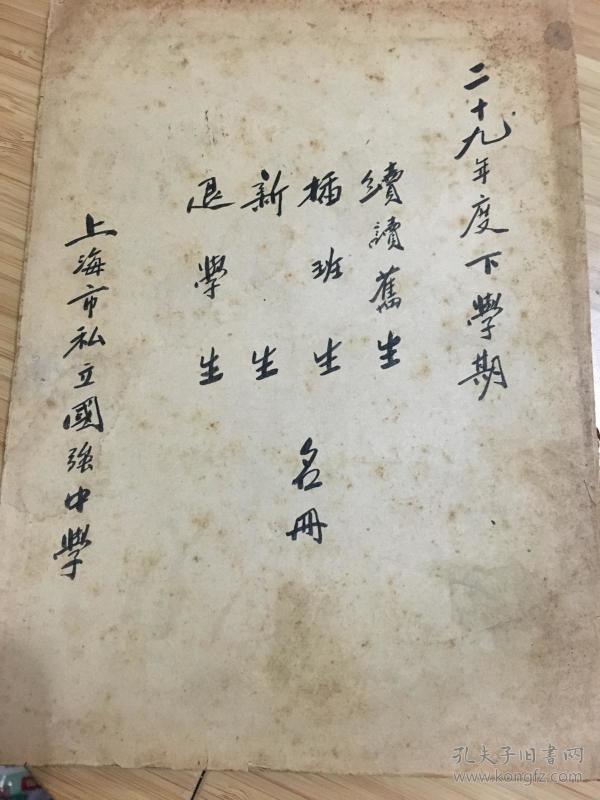 二十九年度下學期
續讀舊生
插班生
新生
退學生
名冊
上海市私立國强中學
孔夫子旧書网
www.kongfz.com